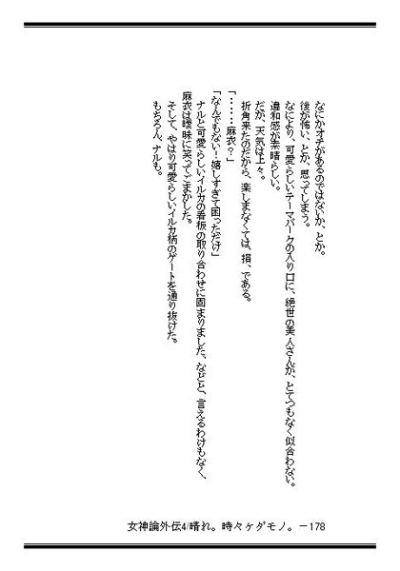 なにかオチがあるのではないか、とか。
後が怖い、とか、思ってしまう。
なにより、可愛らしいテーマパークの入り口に、絶世の美人さんが、とてつもなく似合わない。
違和感が素晴らしい。
だが、天気は上々。
折角来たのだから、楽しまなくては、損、である。
「‥‥‥麻衣？」
「なんでもない！嬉しすぎて困っただけ」
ナルと可愛らしいイルカの看板の取り合わせに固まりました、などと、言えるわけもなく、
麻衣は曖昧に笑ってごまかした。
そして、やはり可愛らしいイルカ柄のゲートを通り抜けた。
もちろん、ナルも。
女神論外伝4/晴れ。時々ケダモノ。－178